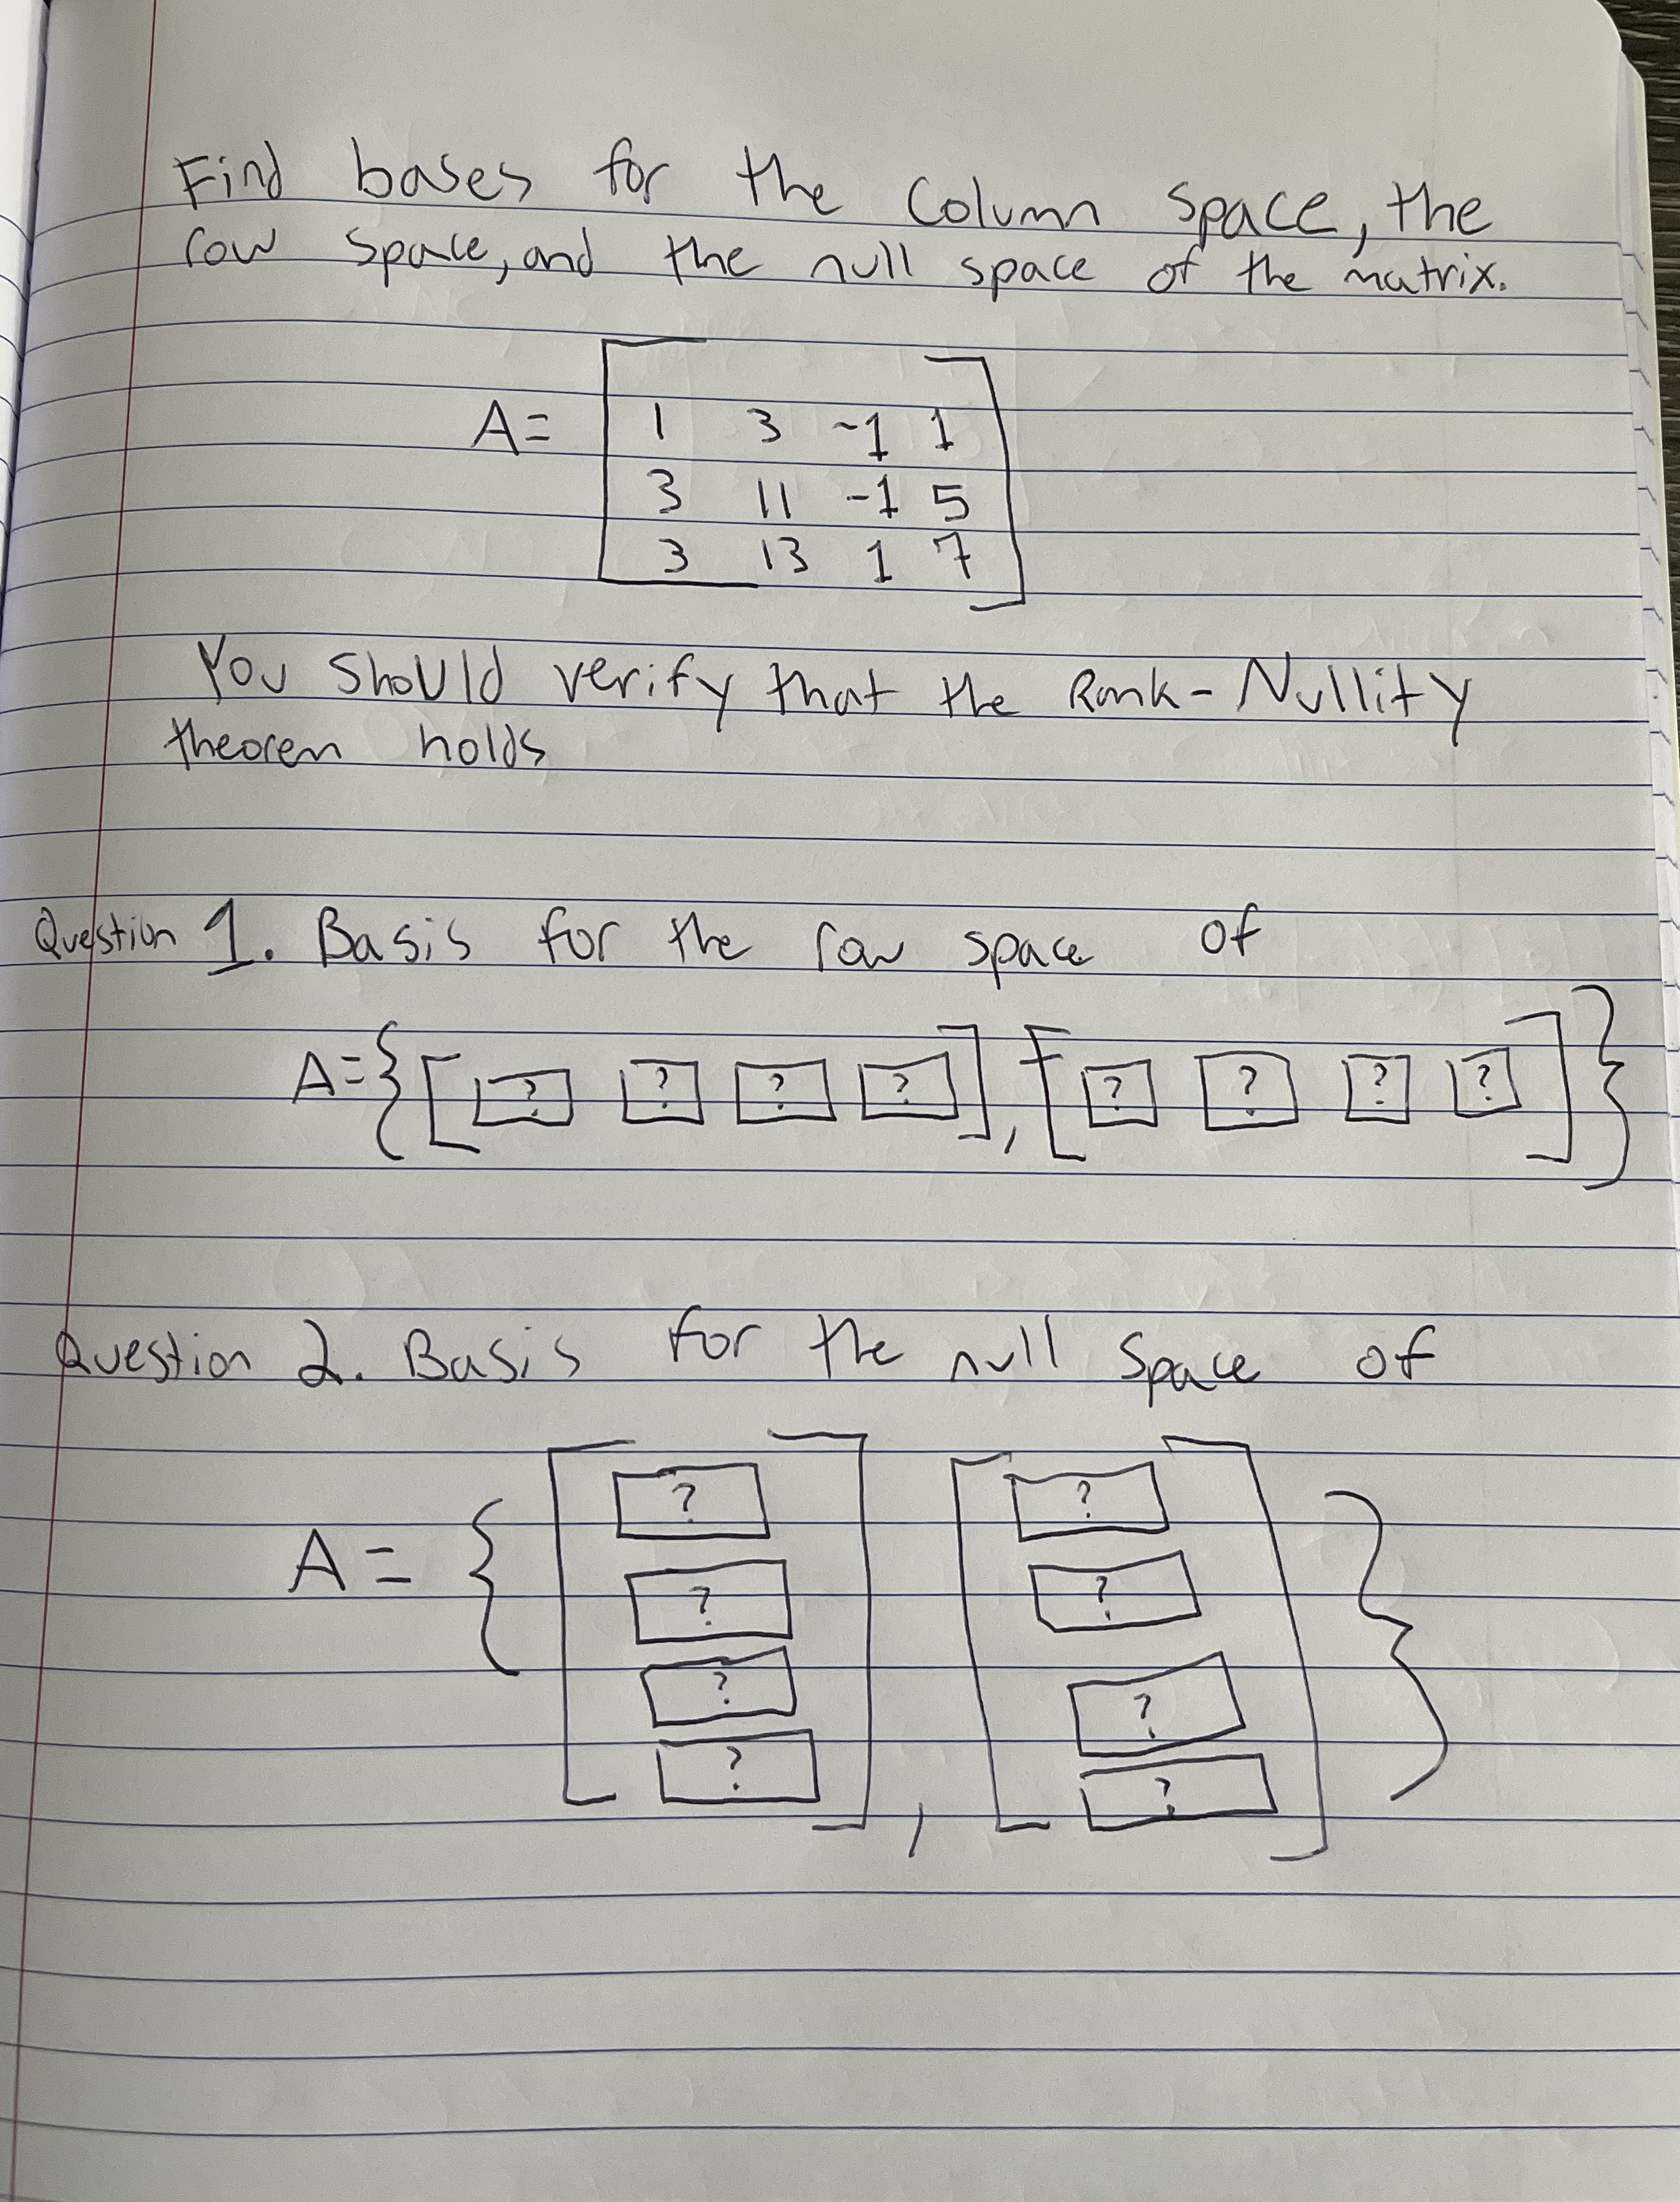 Find bases for the Column Space, the
row space, and the null space of the matrix.
A= [ 1 3 -1 1
3 11 -1 5
3 13 1 7 ]
You should verify that the Rank-Nullity
theorem holds
Question 1. Basis for the row space of
A={[ ? ? ? ? ], [ ? ? ? ? ]}
Question 2. Basis for the null space of
A = { [ ? ? ? ? ], [ ? ? ? ? ] }